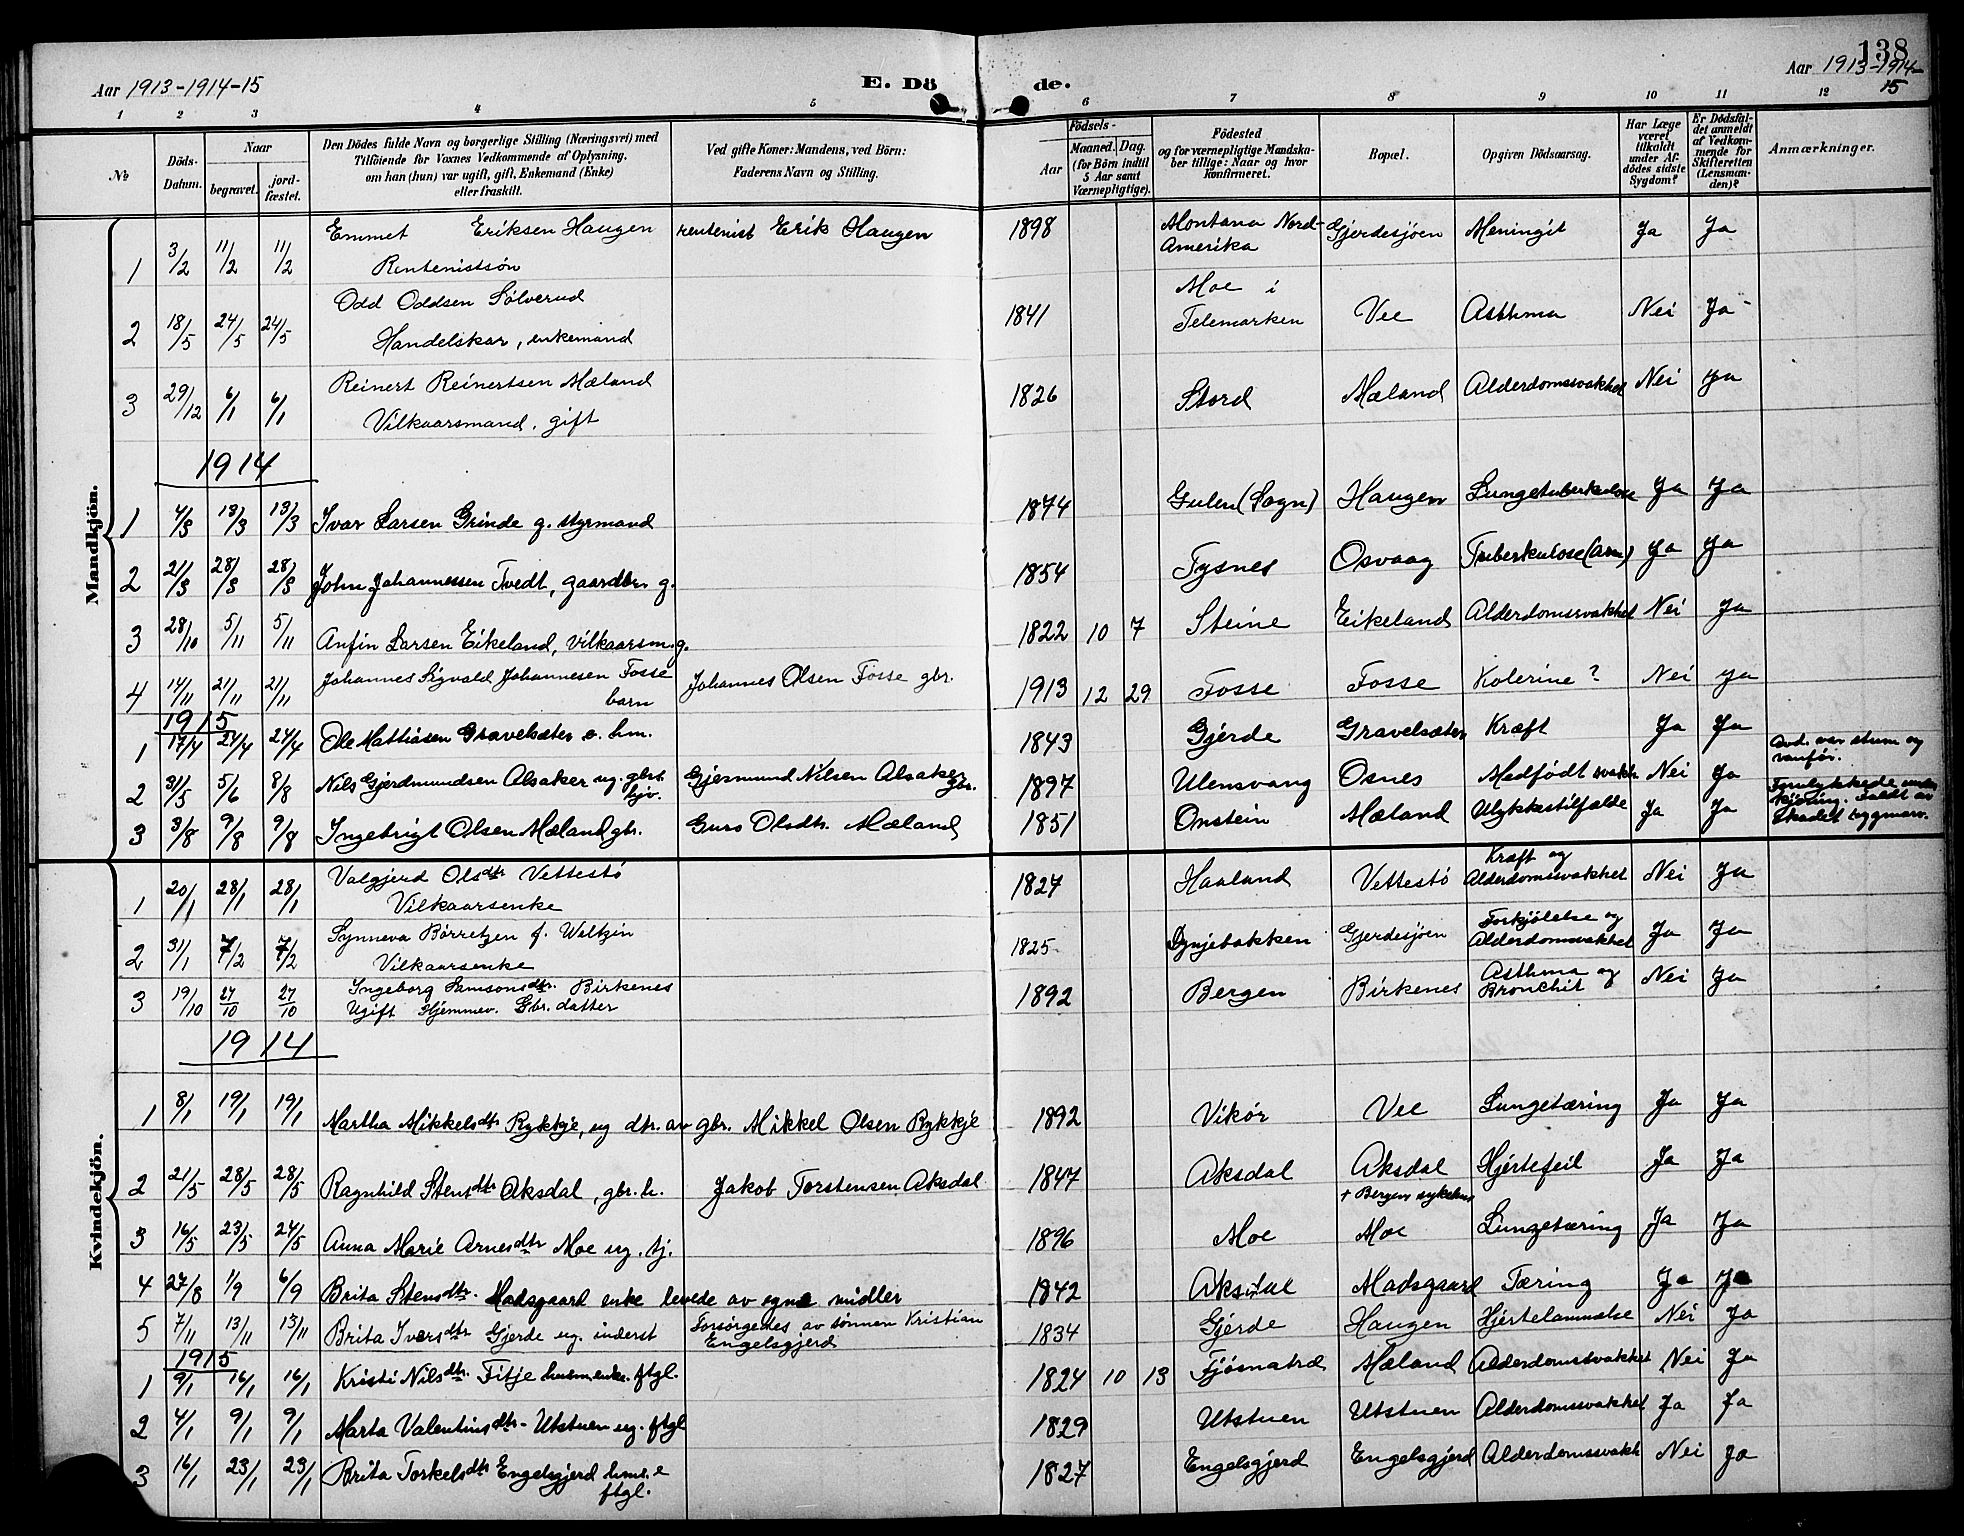 138
Aar 1913-1914-15 E. Dö de. Aar 1913-1914-15
1 2 3 4 5 6 7 8 9 10 11 12
№
Döds-Datum.
Naar
begravet.
jord-fæstet.
Den Dödes fulde Navn og borgerlige Stilling (Næringsvei) med
Tilföiende for Voxnes Vedkommende af Oplysning.
om han (hun) var ugift, gift, Enkemand (Enke)
eller fraskilt.
Ved gifte Koner: Mandens, ved Börn:
Faderens Navn og Stilling.
Födsels-
Aar
Maaned. Dag.
(for Börn indtil
5 Aar samt
Værnepligtige).
Födested
og for værnepligtige Mandska-
ber tillige: Naar og hvor
konfirmeret.
Bopæl.
Opgiven Dödsaarsag.
Har Læge
været
tilkaldt
under Af-
dödes sidste
Sygdom?
Er Dödsfal-
det anmeldt
af Vedkom-
mende for
Skifteretten
(Lensman-
den)?
Anmærkninger.
Mandkjön.
1 3/2 11/2 11/2 Emmet Eriksen Haugen rentenist Erik Haugen 1898 Montana Nord- Gjerdesjøen Meningit Ja Ja
Rentenistsøn Amerika
2 18/5 24/5 24/5 Odd Oddsen Sølverud 1841 Moe i Vee Asthma Nei Ja
Handelskar, enkemand Telemarken
3 29/12 6/1 6/1 Reinert Reinertsen Mæland 1826 Stord Mæland Alderdomssvakhet Nei Ja
Vilkaarsmand, gift
1914
1 4/3 13/3 13/3 Ivar Larsen Grinde g. styrmand 1874 Gulen (Sogn) Haugen Lungetuberkulose Ja Ja
2 21/3 28/3 28/3 John Johannessen Tvedt, gaardbr. g. 1854 Tysnes Osvaag Tuberkulose (arm) Ja Ja
3 28/10 5/11 5/11 Anfin Larsen Eikeland, Vilkaarsm. g. 1822 10 7 Steine Eikeland Alderdomssvakhet Nei Ja
4 14/11 21/11 21/11 Johannes Sigvald Johannesen Fosse Johannes Olsen Fosse gbr. 1913 12 29 Fosse Fosse Kolerine? Nei Ja
barn
1915
1 17/4 24/4 24/4 Ole Mattiasen Gravelsæter e. hm. 1843 Gjerde Gravelsæter Kræft Ja Ja
2 31/5 5/6 8/8 Nils Gjerdmundsen Alsaker ug. gbrs. Gjesmund Nilsen Alsaker gbr. 1897 Ulensvang Osnes Medfödt svakh. Nei Ja Avd. var stum og
hjv. vanför.
3 3/8 9/8 9/8 Ingebrigt Olsen Mæland gbr. Guro Olsdtr. Mæland 1851 Onstein Mæland Ulykkestilfælde Ja Ja Forulykkede under
kjöring. Faldt av
Skadet rygmarv.
Kvindekjön.
1 20/1 28/1 28/1 Valgjerd Olsdtr Vettestø 1827 Haaland Vettestö Kræft og Nei Ja
Vilkaarsenke Alderdomssvakhet
2 31/1 7/2 7/2 Synneva Börretzen f. Weltzin 1825 Dynjebakken Gjerdesjøen Forkjölelse og Ja Ja
Vilkaarsenke Alderdomssvakhet
3 19/10 27/10 27/10 Ingeborg Samsonsdtr. Birkenes 1892 Bergen Birkenes Asthma og Nei Ja
Ugift Hjemmev. Gbr. datter Bronchit
1914
1 8/1 19/1 19/1 Martha Mikkelsdtr Rykkje, ug dtr. av gbr. Mikkel Olsen Rykkje 1892 Vikör Vee Lungetæring Ja Ja
2 21/5 28/5 28/5 Ragnhild Stensdtr Aksdal, gbr. h. Jakob Torstensen Aksdal 1847 Aksdal Aksdal Hjertefeil Ja Ja
+ Bergens sykehus
3 16/5 23/5 24/5 Anna Marie Arnesdtr Moe ug. tj. 1896 Moe Moe Lungetæring Ja Ja
4 27/8 1/9 6/9 Brita Stensdtr. Madsgaard enke levede av egne midler 1842 Aksdal Madsgaard Tæring Ja Ja
5 7/11 13/11 13/11 Brita Iversdtr Gjerde ug. inderst Forsörgedes av sönnen Kristian 1834 Gjerde Haugen Hjertelammelse Nei Ja
Engelsgjerd
1915
1 9/1 16/1 16/1 Kristi Nilsdtr. Fitje husm.enke. ftgl. 1824 10 13 Fjösnatræ Mæland Alderdomssvakhet Nei Ja
2 4/1 9/1 9/1 Marta Valentinsdtr- Utstuen ug. ftgl 1829 Utstuen Utstuen Alderdomssvakhet Ja Ja
3 16/1 23/1 23/1 Brita Torkelsdtr Engelsgjerd hms. e 1827 Engelsgjerd Engelsgjerd Alderdomssvakh Nei Ja
ftgl.